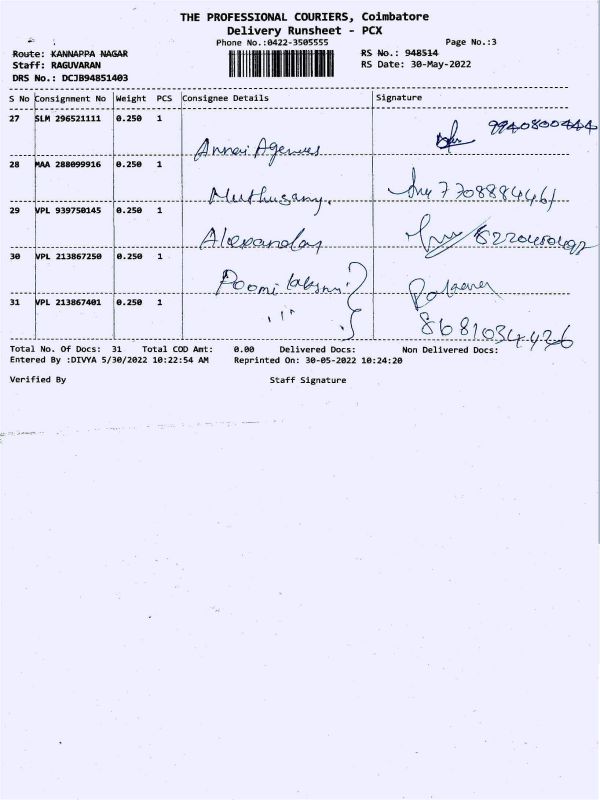 THE PROFESSIONAL COURIERS, Coimbatore
Delivery Runsheet - PCX
Phone No.:0422-3505555 Page No.:3
Route: KANNAPPA NAGAR RS No.: 948514
Staff: RAGUVARAN RS Date: 30-May-2022
DRS No.: DCJB94851403
S No Consignment No Weight PCS Consignee Details Signature
27 SLM 296521111 0.250 1
Annai Agencies 9940800444
28 MAA 288099916 0.250 1
Muthusamy. 7708884461
29 VPL 939750145 0.250 1
Alexander
30 VPL 213867250 0.250 1
Poomi
31 VPL 213867401 0.250 1
8681034426
Total No. Of Docs: 31 Total COD Amt: 0.00 Delivered Docs: Non Delivered Docs:
Entered By :DIVYA 5/30/2022 10:22:54 AM Reprinted On: 30-05-2022 10:24:20
Verified By Staff Signature